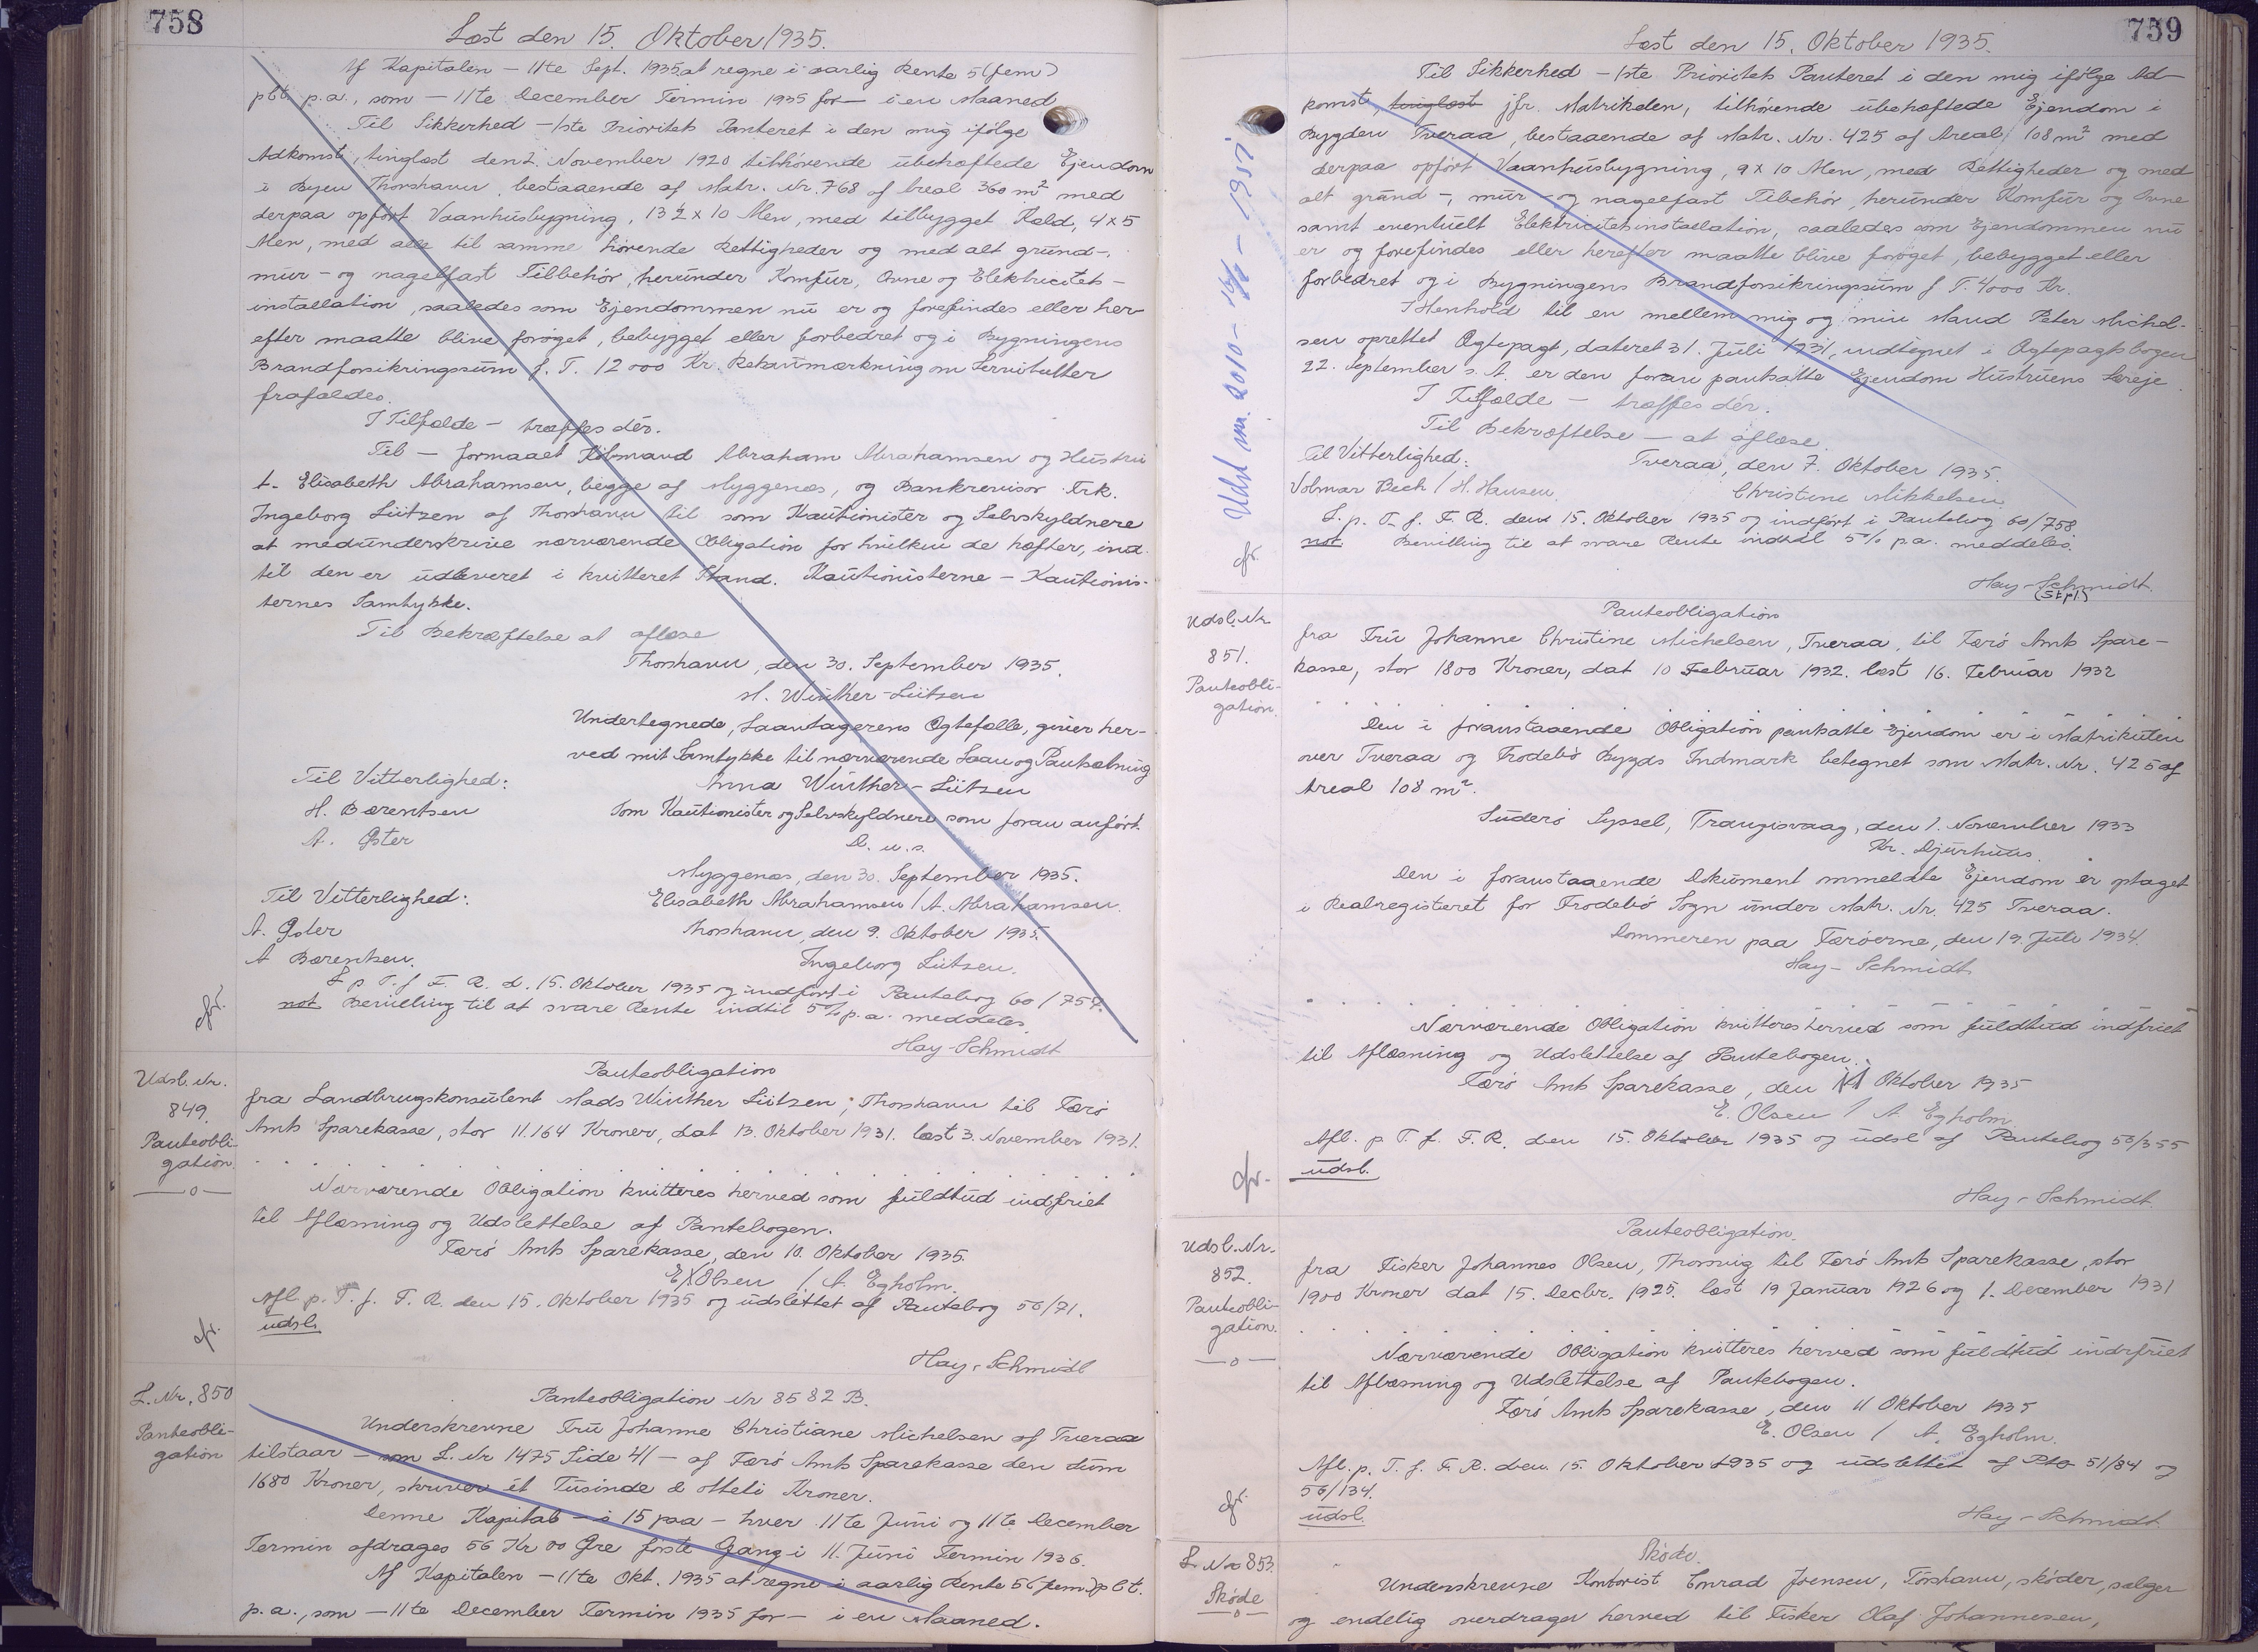 758
Læst den 15. Oktober 1935.
Af Kapitalen – 11te Sept. 1935 at regne i aarlig Rente 5 (fem)
pCt p.a., som – 11te December Termin 1935 for – i en Maaned
Til Sikkerhed – 1ste Prioritets Panteret i den mig ifölge
Adkomst, tinglæst den 2. November 1920 tilhörende ubehæftede Ejendom
i Byen Thorshavn bestaaende af Matr. Nr. 768 af Areal 360 m² med
derpaa opfört Vaanhusbygning, 13½ x 10 Alen, med tilbygget Kald, 4 x 5
Alen, med alle til samme hörende Rettigheder og med alt grund-,
mur- og nagelfast Tilbehör, herunder Komfur, Ovne og Elektricitets-
installation, saaledes som Ejendommen nu er og forefindes eller her-
efter maatte blive foröget, bebygget eller forbedret og i Bygningens
Brandforsikringssum f. T. 12000 Kr. Retsanmærkning om Servitutter
frafaldes.
I Tilfælde – træffes dér.
Til – formaaet Köbmand Abraham Abrahamsen og Hustru
t. Elisabeth Abrahamsen, begge af Myggenæs, og Bankrevisor Frk.
Ingeborg Lützen af Thorshavn til som Kautionister og Selvskyldnere
at medunderskrive nærværende Obligation for hvilken de hæfter, ind-
til den er udleveret i kvitteret Stand. Kautionisterne – Kautionis-
ternes Samtykke.
Til Bekræftelse at aflæse
Thorshavn, den 30. September 1935.
M. Winther-Lützen
Undertegnede, Laantagerens Ægtefælle, giver her-
ved mit Samtykke til nærværende Laan og Pantsætning
Til Vitterlighed:
Anna Winther-Lützen
H. Bærentsen
Som Kautionister og Selvskyldnere som foran anfört.
A. Öster
D. u. s.
Myggenæs, den 30. September 1935.
Til Vitterlighed:
Elisabeth Abrahamsen / A. Abrahamsen.
A. Öster
Thorshavn, den 9. Oktober 1935.
A Bærentsen.
Ingeborg Lützen.
L p T. f F. R. d. 15. Oktober 1935 og indfört i Pantebog 60 / 757.
not Bevilling til at svare Rente indtil 5 % p.a. meddeles.
cfr.
Hay-Schmidt
Udsl. Nr.
849.
Panteobli-
gation
—o—
Panteobligation
fra Landbrugskonsulent Mads Winther Lützen, Thorshavn til Færö
Amts Sparekasse, stor 11.164 Kroner, dat 13. Oktober 1931. læst 3. November 1931.
Nærværende Obligation kvitteres herved som fuldtud indfriet
til Aflæsning og Udslettelse af Pantebogen.
Færö Amts Sparekasse, den 10. Oktober 1935.
E. Olsen / A. Egholm.
Afl. p. T. f. F. R. den 15. Oktober 1935 og udslettet af Pantebog 56/71.
udsl.
cfr.
Hay-Schmidt
L. Nr. 850
Panteobli-
gation
Panteobligation Nr 8582 B.
Underskrevne Fru Johanne Christiane Michelsen af Tveraa
tilstaar – som L. Nr 1475 Side 41 – af Færö Amts Sparekasse den Sum
1680 Kroner, skriver ét Tusinde & otteti Kroner.
Denne Kapital – i 15 paa – hver 11te Juni og 11te December
Termin afdrages 56 Kr 00 Øre förste Gang i 11. Juni Termin 1936.
Af Kapitalen – 11te Okt. 1935 at regne i aarlig Rente 5 (fem) pCt.
p.a., som – 11te December Termin 1935 for – i en Maaned.
759
Læst den 15. Oktober 1935.
Til Sikkerhed – 1ste Prioritets Panteret i den mig ifölge Ad-
komst, tinglæst jfr. Matrikelen, tilhörende ubehæftede Ejendom i
Bygden Tveraa, bestaaende af Matr. Nr. 425 af Areal 108 m² med
derpaa opfört Vaanhusbygning, 9 x 10 Alen, med Rettigheder og med
alt grund-, mur- og nagelfast Tilbehör, herunder Komfur og Ovne
samt eventuelt Elektricitetsinstallation, saaledes som Ejendommen nu
er og forefindes eller herefter maatte blive foröget, bebygget eller
forbedret og i Bygningens Brandforsikringssum f T. 4000 Kr.
I Henhold til en mellem mig og min Mand Peter Michel-
sen oprettet Ægtepagt, dateret 31. Juli 1931, indtegnet i Ægtepagtsbogen
22. September s. A. er den foran pantsatte Ejendom Hustruens Særeje.
I Tilfælde – træffes dér.
Til Bekræftelse – at aflæse.
Til Vitterlighed:
Tveraa, den 7. Oktober 1935.
Volmar Bech / H. Hansen.
Christine Mikkelsen
L. p. T. f. F. R. den 15. Oktober 1935 og indfört i Pantebog 60/758
not. Bevilling til at svare Rente indtil 5 % p.a. meddeles.
cfr.
Hay-Schmidt.
(St pl.)
Udsl. Nr.
851.
Panteobli-
gation.
Panteobligation
fra Fru Johanne Christine Michelsen, Tveraa, til Færö Amts Spare-
kasse, stor 1800 Kroner, dat 10 Februar 1932. læst 16. Februar 1932
Den i foranstaaende Obligation pantsatte Ejendom er i Matrikulen
over Tveraa og Frodebö Bygds Indmark betegnet som Matr. Nr. 425 af
Areal 108 m².
Suderö Syssel, Trangisvaag, den 1. November 1933
Kr. Djurhuus.
Den i foranstaaende Dokument ommeldte Ejendom er optaget
i Realregisteret for Frodebö Sogn under Matr. Nr. 425 Tveraa.
Dommeren paa Færöerne, den 19. Juli 1934.
Hay-Schmidt
Nærværende Obligation kvitteres herved som fuldtud indfriet
til Aflæsning og Udslettelse af Pantebogen.
Færö Amts Sparekasse, den 11 Oktober 1935
E. Olsen / A. Egholm
Afl. p T. f. F. R. den 15. Oktober 1935 og udsl af Pantebog 56/355
udsl.
cfr.
Hay-Schmidt.
Udsl. Nr.
852.
Panteobli-
gation.
—o—
Panteobligation.
fra Fisker Johannes Olsen, Thorvig til Færö Amts Sparekasse, stor
1900 Kroner dat 15. Decbr. 1925. læst 19 Januar 1926 og 1. December 1931
Nærværende Obligation kvitteres herved som fuldtud indfriet
til Aflæsning og Udslettelse af Pantebogen.
Færö Amts Sparekasse, den 11 Oktober 1935
E. Olsen / A. Egholm.
Afl. p. T. f. F. R. den 15. Oktober 1935 og udslettet af Ptb 51/84 og
56/134.
udsl.
cfr.
Hay-Schmidt.
L. Nr 853.
Sköde
—o—
Sköde.
Underskrevne Kontorist Conrad Joensen, Tórshavn, sköder, sælger
og endelig overdrager herved til Fisker Olaf Johannesen,